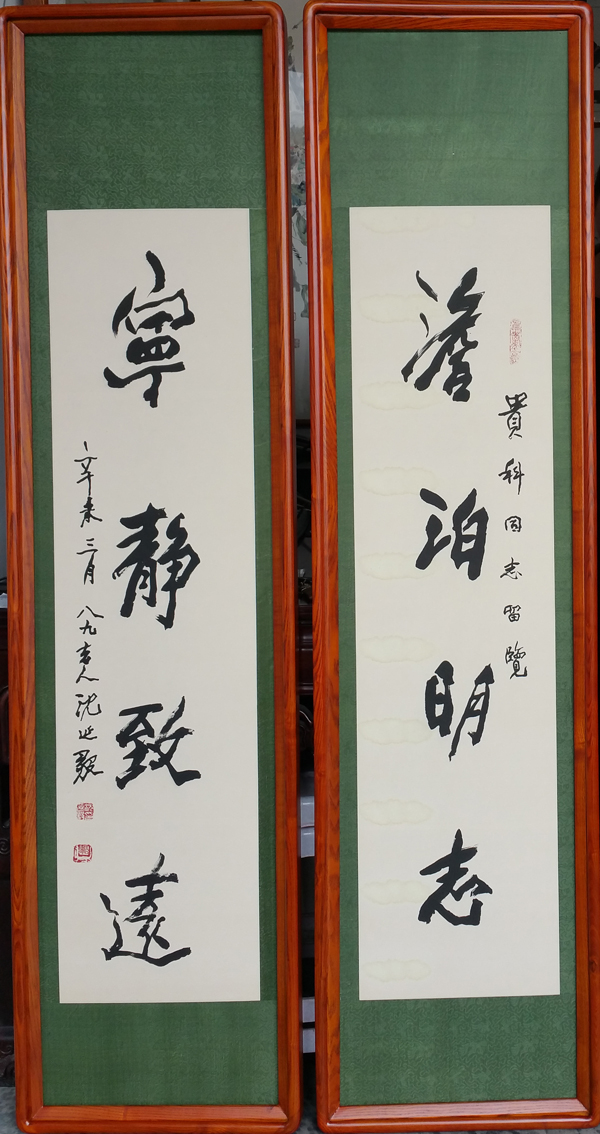 貴科同志留覽
澹泊明志
寧靜致遠
辛未三月八九老人沈延毅